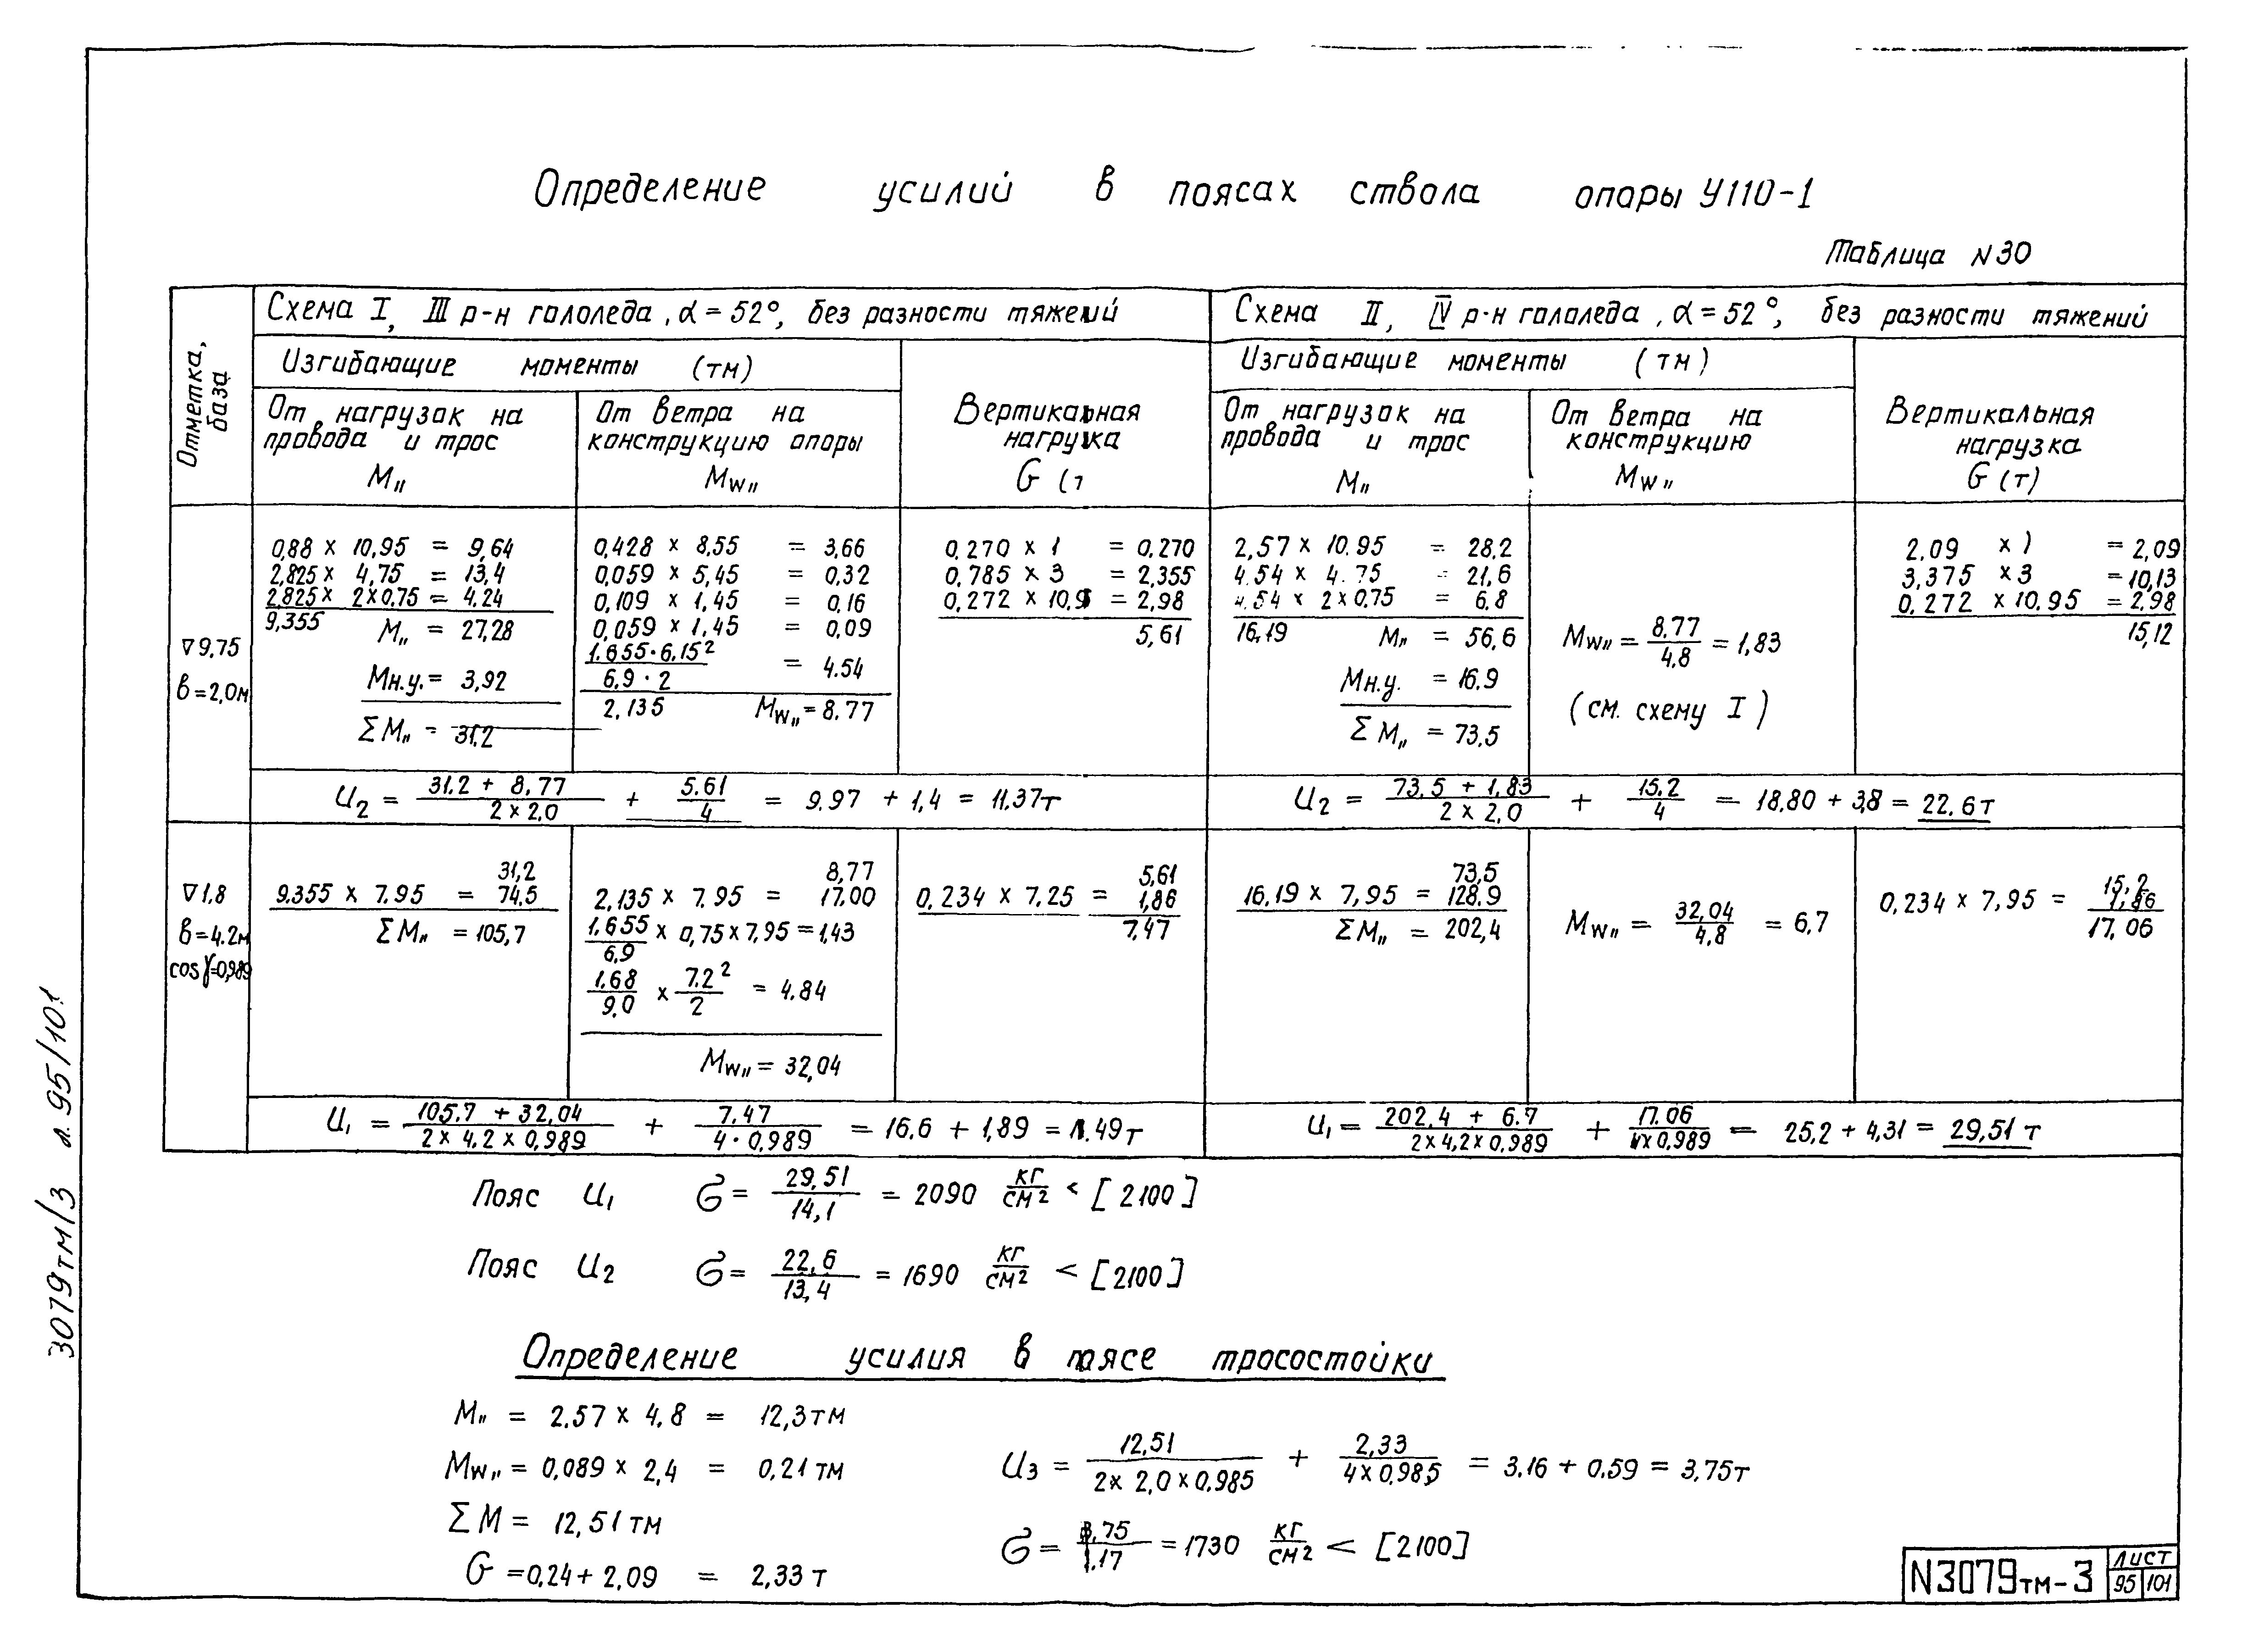 Определение усилий в поясах ствола опоры У110-1
Таблица N30
Отметка, база
Схема I, III р-н гололеда, α = 52°, без разности тяжений
Изгибающие моменты (тм)
От нагрузок на
провода и трос
M"
От ветра на
конструкцию опоры
Mw"
Вертикальная
нагрузка
G (т
Схема II, IV р-н гололеда, α = 52°, без разности тяжений
Изгибающие моменты (тм)
От нагрузок на
провода и трос
M"
От ветра на
конструкцию
Mw"
Вертикальная
нагрузка
G (т)
∇9,75
в = 2,0м
0,88 × 10,95 = 9,64
2,825 × 4,75 = 13,4
2,825 × 2 × 0,75 = 4,24
9,355 M" = 27,28
Мн.у. = 3,92
ΣM" = 31,2
0,428 × 8,55 = 3,66
0,059 × 5,45 = 0,32
0,109 × 1,45 = 0,16
0,059 × 1,45 = 0,09
1,655·6,15² / 6,9·2 = 4.54
2,135 Mw" = 8.77
0.270 × 1 = 0,270
0,785 × 3 = 2,355
0,272 × 10,95 = 2,98
5,61
2,57 × 10.95 = 28,2
4.54 × 4.75 = 21,6
4.54 × 2 × 0.75 = 6,8
16,19 M" = 56,6
Мн.у. = 16.9
ΣM" = 73,5
Mw" = 8,77 / 4,8 = 1,83
(см. схему I)
2.09 × 1 = 2,09
3,375 × 3 = 10,13
0,272 × 10.95 = 2,98
15,12
U2 = 31.2 + 8,77 / 2 × 2,0 + 5.61 / 4 = 9.97 + 1,4 = 11.37т
U2 = 73.5 + 1,83 / 2 × 2,0 + 15.2 / 4 = 18,80 + 3,8 = 22,6т
∇1,8
в = 4.2м
cos γ = 0,989
31,2
9.355 × 7.95 = 74,5
ΣM" = 105,7
8,77
2,135 × 7.95 = 17,00
1,655 / 6,9 × 0,75 × 7.95 = 1,43
1,68 / 9,0 × 7.2² / 2 = 4.84
Mw" = 32,04
5,61
0,234 × 7,25 = 1,86
7,47
73,5
16,19 × 7,95 = 128.9
ΣM" = 202,4
Mw" = 32,04 / 4,8 = 6,7
15,2
0,234 × 7,95 = 1,86
17,06
U1 = 105.7 + 32,04 / 2 × 4,2 × 0,989 + 7.47 / 4·0,989 = 16,6 + 1,89 = 1.49т
U1 = 202,4 + 6.7 / 2 × 4,2 × 0,989 + 17.06 / 4 × 0,989 = 25,2 + 4,31 = 29,51 т
Пояс U1 σ = 29,51 / 14,1 = 2090 кг/см² < [2100]
Пояс U2 σ = 22,6 / 13,4 = 1690 кг/см² < [2100]
Определение усилия в поясе тросостойки
M" = 2.57 × 4,8 = 12,3тм
Mw" = 0,089 × 2,4 = 0,21тм
ΣM = 12,51тм
G = 0,24 + 2,09 = 2,33т
U3 = 12,51 / 2 × 2,0 × 0,985 + 2,33 / 4 × 0,985 = 3.16 + 0.59 = 3,75т
σ = 3,75 / 1.17 = 1730 кг/см² < [2100]
3079тм/3 л. 95/101
N3079тм-3
лист
95 101